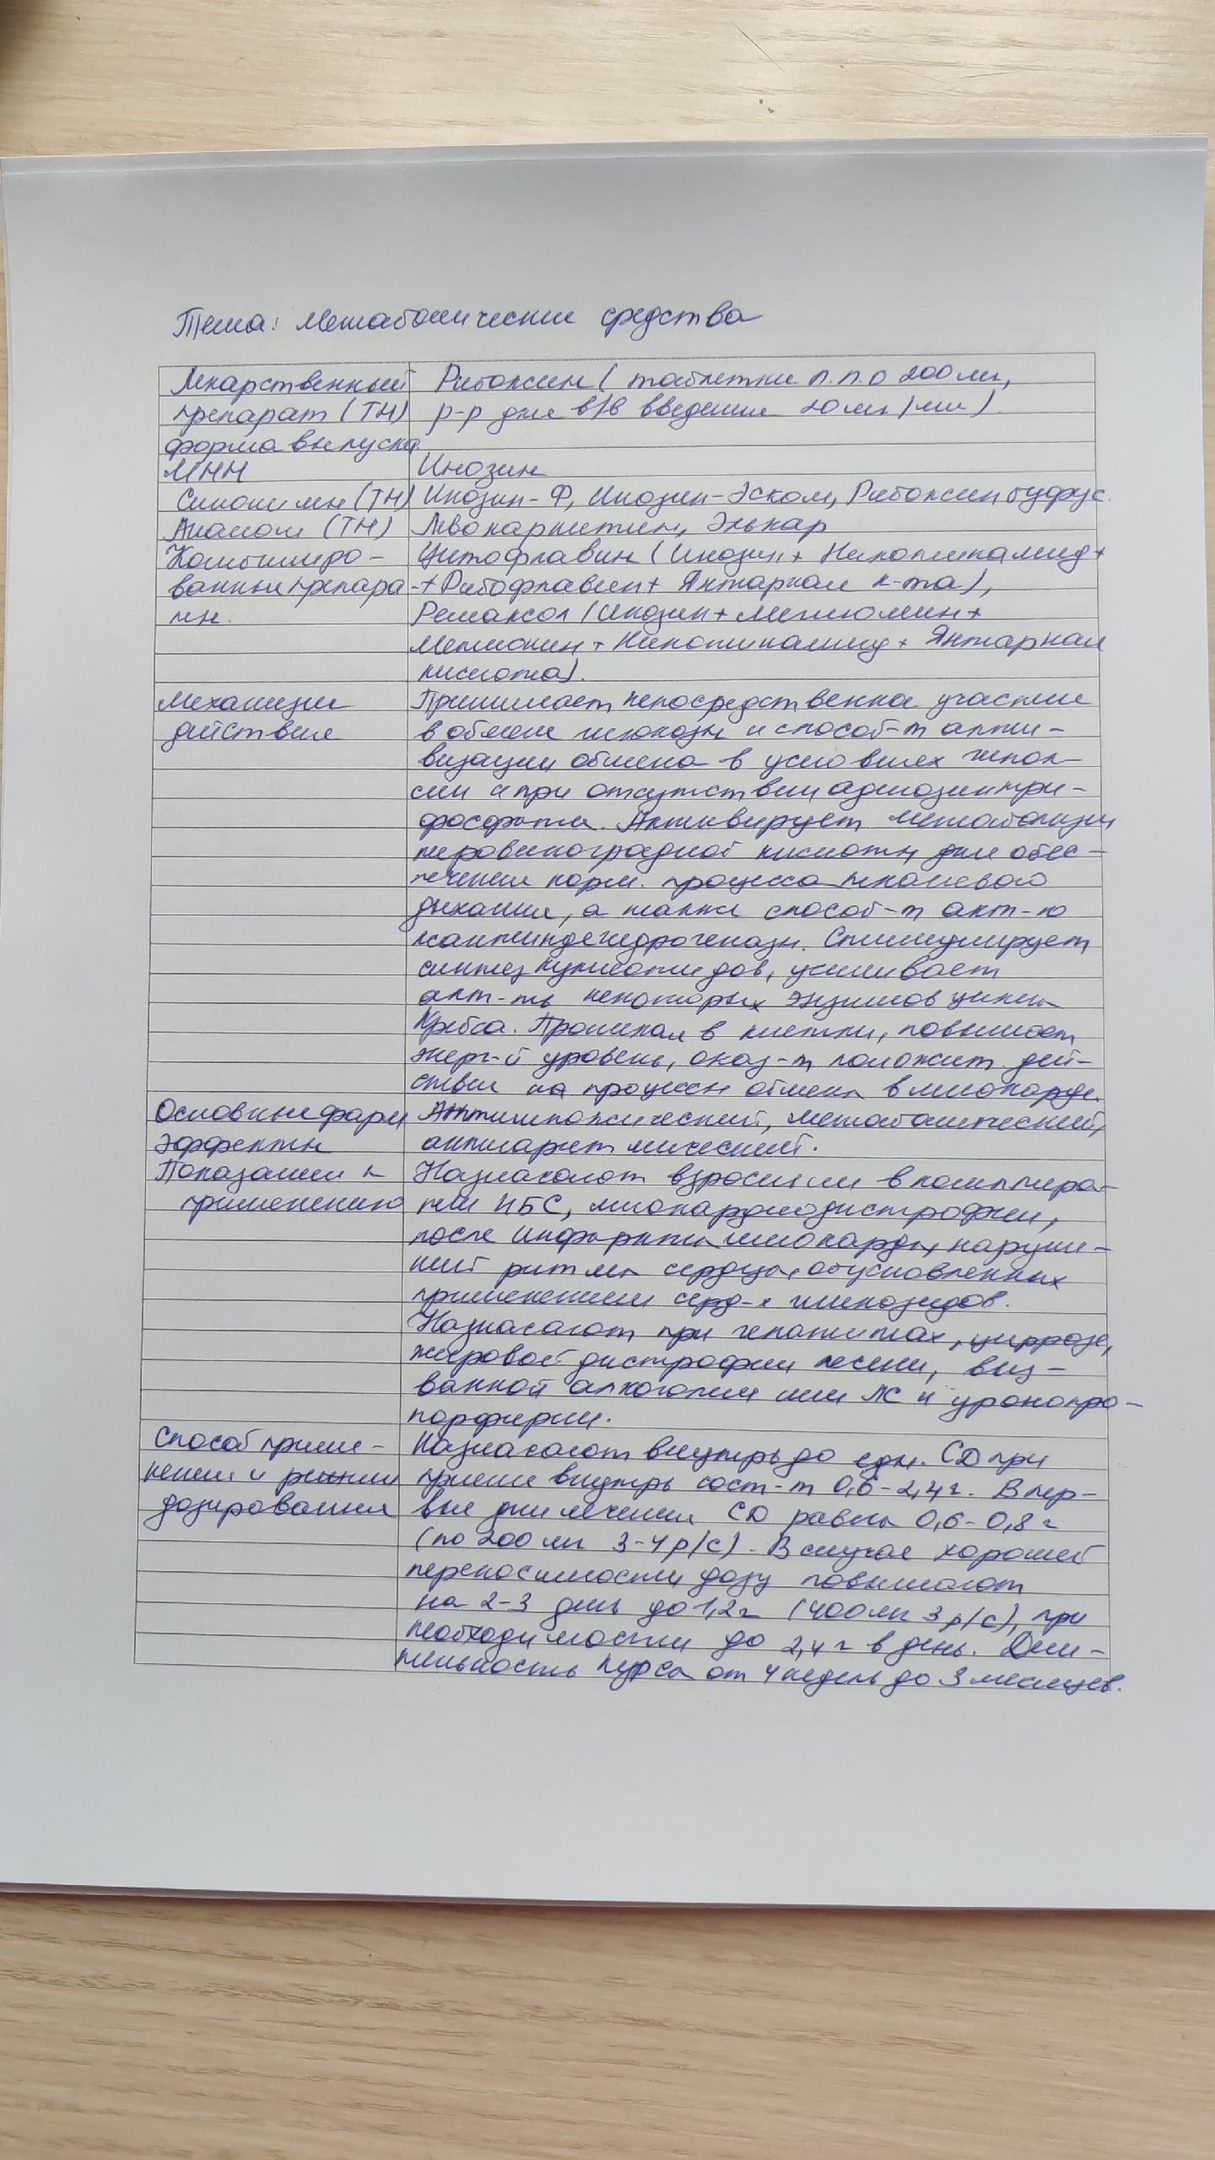 Тема: Метаболические средства
Лекарственный Рибоксин ( таблетки п.п.о 200 мг,
препарат (ТН) р-р для в/в введения 20 мг/мл).
форма выпуска
МНН Инозин
Синонимы (ТН) Инозин-Ф, Инозин-Эском, Рибоксин буфус.
Аналоги (ТН) Левокарнитин, Элькар
Комбиниро- Цитофлавин (Инозин + Никотинамид +
ванные препара- + Рибофлавин + Янтарная к-та),
ты. Ремаксол (Инозин + Меглюмин +
Метионин + Никотинамид + Янтарная
кислота).
Механизм Принимает непосредственное участие
действия в обмене глюкозы и способ-т акти-
визации обмена в условиях гипок-
сии и при отсутствии аденозинтри-
фосфата. Активирует метаболизм
пировиноградной кислоты для обес-
печения норм. процесса тканевого
дыхания, а также способ-т акт-ю
ксантиндегидрогеназы. Стимулирует
синтез нуклеотидов, усиливает
акт-ть некоторых энзимов цикла
Кребса. Проникая в клетки, повышает
энерг-й уровень, оказ-т положит. дей-
ствие на процессы обмена в миокарде.
Основные фарм Антигипоксический, метаболический,
эффекты антиаритмический.
Показания к Назначают взрослым в комплтера-
применению пии ИБС, миокардиодистрофии,
после инфаркта миокарда, наруше-
ний ритма сердца, обусловленных
применением серд-х гликозидов.
Назначают при гепатитах, циррозе,
жировой дистрофии печени, выз-
ванной алкоголем или ЛС и уропо-
порфирии.
Способ приме- Назначают внутрь до еды. СД при
нения и режим приеме внутрь сост-т 0,6-2,4 г. В пер-
дозирования вые дни лечения СД равна 0,6-0,8 г
(по 200 мг 3-4 р/с). В случае хорошей
переносимости дозу повышают
на 2-3 день до 1,2 г (400 мг 3 р/с), при
необходимости до 2,4 г в день. Дли-
тельность курса от 4 недель до 3 месяцев.